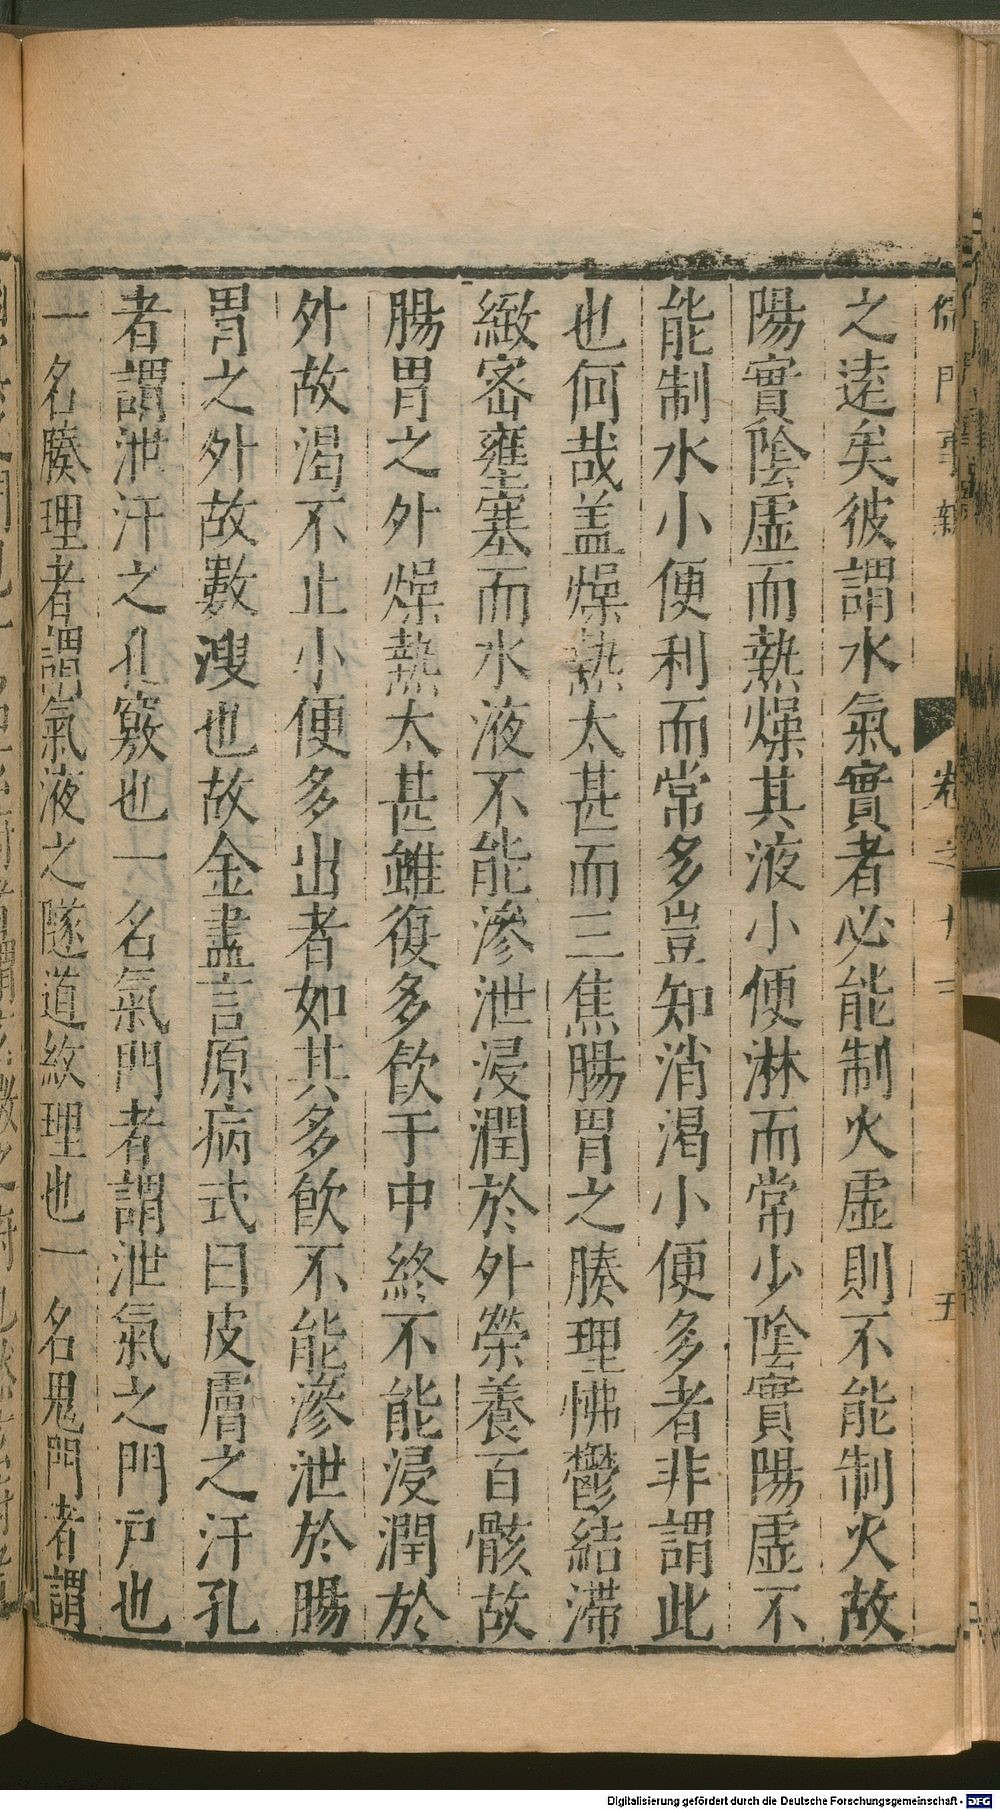 儒門事親 卷之十三 五
之遠矣彼謂水氣實者必能制火虛則不能制火故
陽實陰虛而熱燥其液小便淋而常少陰實陽虛不
能制水小便利而常多豈知消渴小便多者非謂此
也何哉盖燥熱太甚而三焦腸胃之腠理怫鬱結滯
緻密壅塞而水液不能滲泄浸潤於外榮養百骸故
腸胃之外燥熱太甚雖復多飲于中終不能浸潤於
外故渴不止小便多出者如其多飲不能滲泄於腸
胃之外故數溲也故金盡言原病式曰皮膚之汗孔
者謂泄汗之孔竅也一名氣門者謂泄氣之門戶也
一名腠理者謂氣液之隧道紋理也一名鬼門者謂
Digitalisierung gefördert durch die Deutsche Forschungsgemeinschaft - DFG